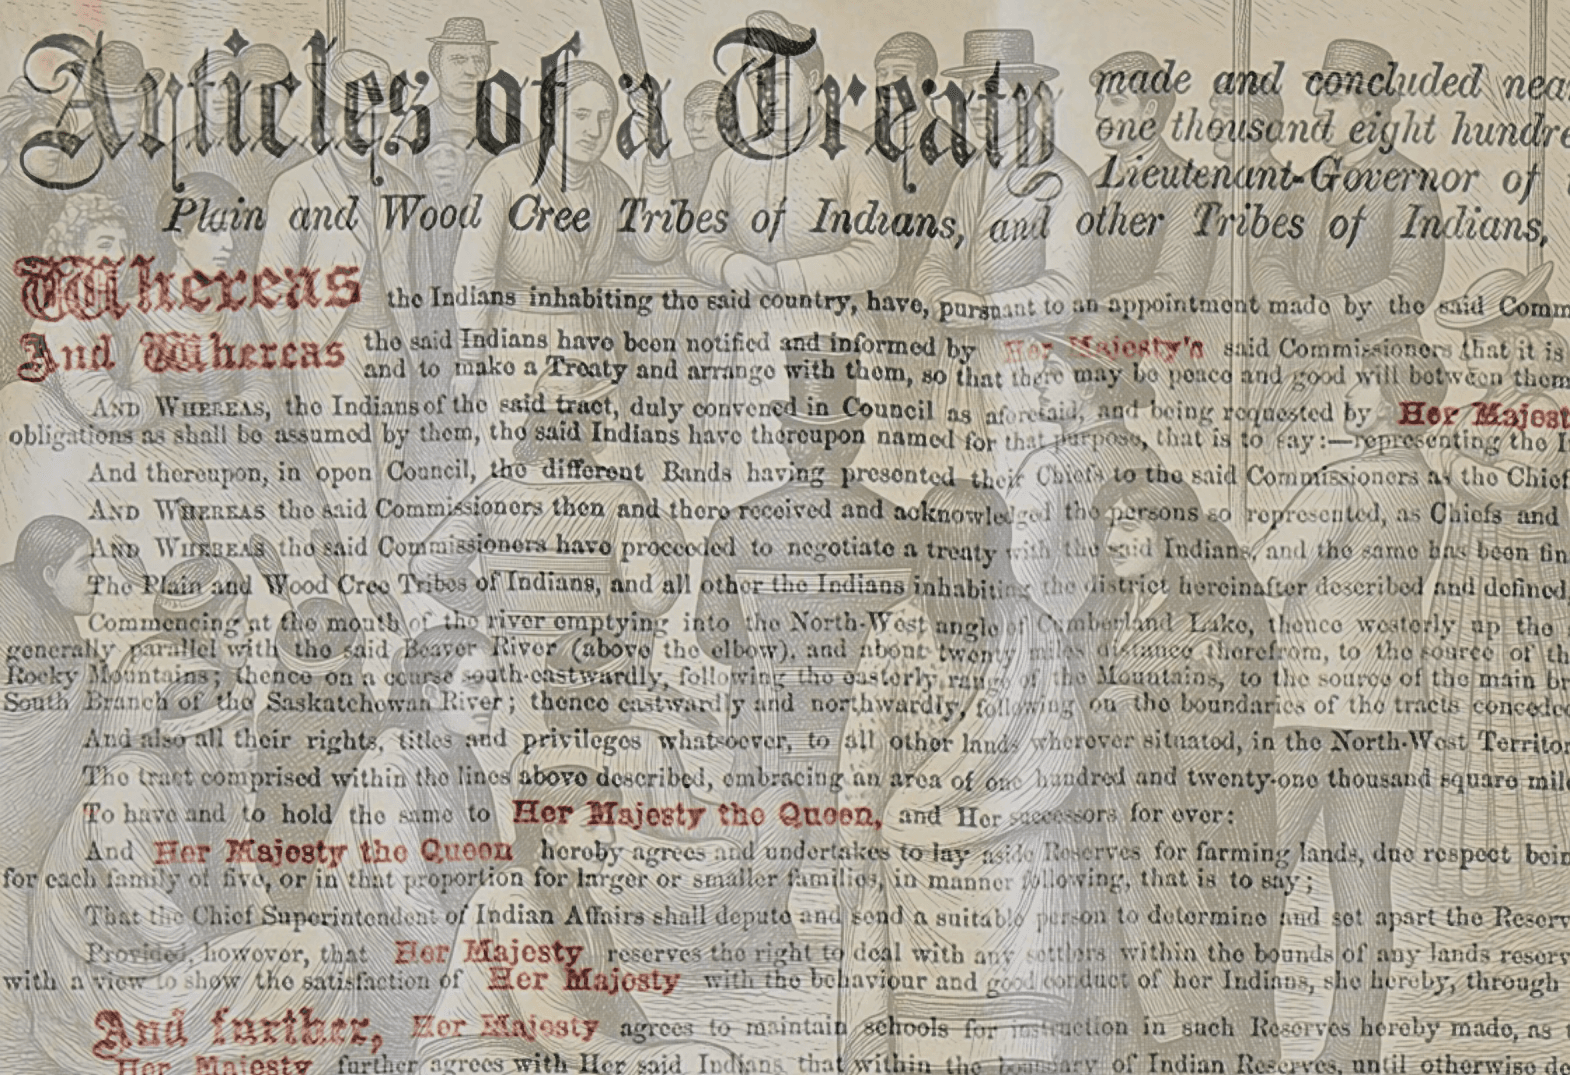 Articles of a Treaty made and concluded near
one thousand eight hundre
Lieutenant-Governor of
Plain and Wood Cree Tribes of Indians, and other Tribes of Indians,
Whereas the Indians inhabiting the said country, have, pursuant to an appointment made by the said Comm
And Whereas the said Indians have been notified and informed by Her Majesty's said Commissioners that it is
and to make a Treaty and arrange with them, so that there may be peace and good will between them
AND WHEREAS, the Indians of the said tract, duly convened in Council as aforesaid, and being requested by Her Majest
obligations as shall be assumed by them, the said Indians have thereupon named for that purpose, that is to say:—representing the I
And thereupon, in open Council, the different Bands having presented their Chiefs to the said Commissioners as the Chief
AND WHEREAS the said Commissioners then and there received and acknowledged the persons so represented, as Chiefs and
AND WHEREAS the said Commissioners have proceeded to negotiate a treaty with the said Indians, and the same has been fin
The Plain and Wood Cree Tribes of Indians, and all other the Indians inhabiting the district hereinafter described and defined,
Commencing at the mouth of the river emptying into the North-West angle of Cumberland Lake, thence westerly up the
generally parallel with the said Beaver River (above the elbow), and about twenty miles distance therefrom, to the source of th
Rocky Mountains; thence on a course south-eastwardly, following the easterly range of the Mountains, to the source of the main br
South Branch of the Saskatchewan River; thence eastwardly and northwardly, following on the boundaries of the tracts conceded
And also all their rights, titles and privileges whatsoever, to all other lands wherever situated, in the North-West Territor
The tract comprised within the lines above described, embracing an area of one hundred and twenty-one thousand square mile
To have and to hold the same to Her Majesty the Queen, and Her successors for ever:
And Her Majesty the Queen hereby agrees and undertakes to lay aside Reserves for farming lands, due respect bein
for each family of five, or in that proportion for larger or smaller families, in manner following, that is to say;
That the Chief Superintendent of Indian Affairs shall depute and send a suitable person to determine and set apart the Reserv
Provided, however, that Her Majesty reserves the right to deal with any settlers within the bounds of any lands reserv
with a view to show the satisfaction of Her Majesty with the behaviour and good conduct of her Indians, she hereby, through
And further, Her Majesty agrees to maintain schools for instruction in such Reserves hereby made, as
Her Majesty further agrees with Her said Indians that within the boundary of Indian Reserves, until otherwise de